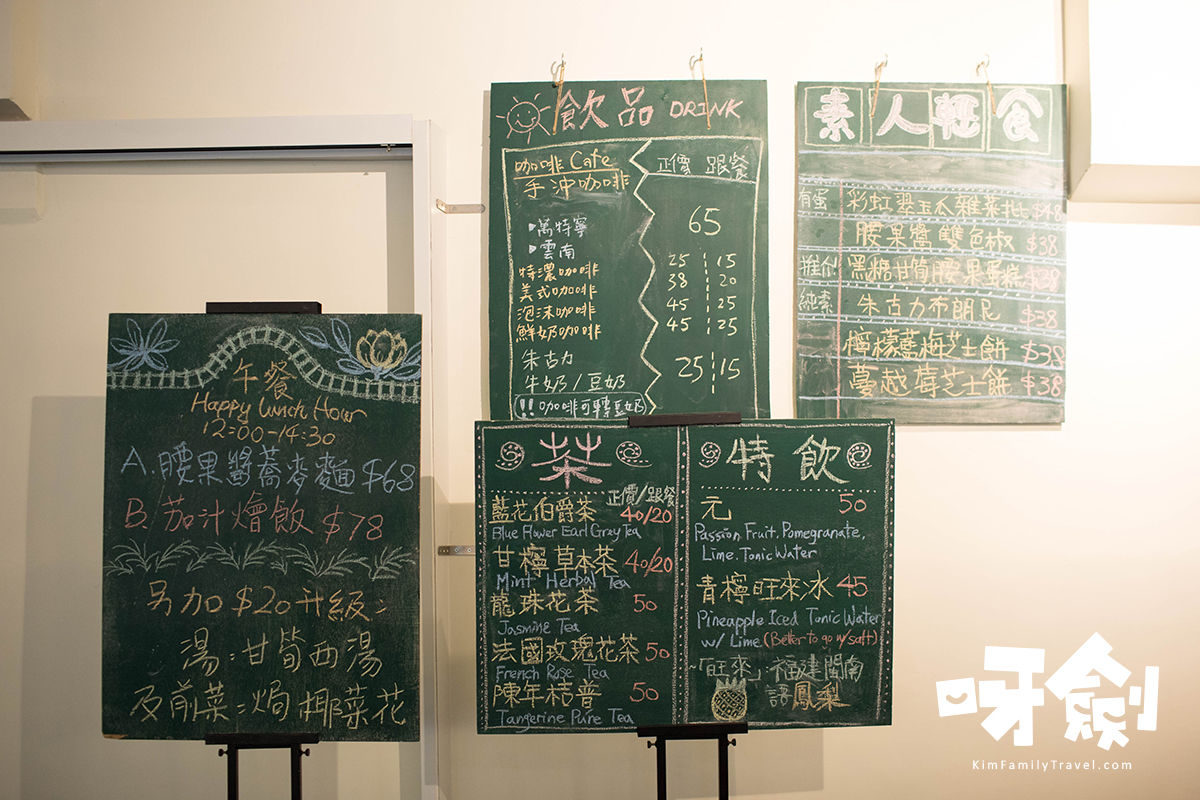 午餐
Happy Lunch Hour
12:00-14:30
A. 腰果醬蕎麥麵 $68
B. 茄汁燴飯 $78
另加$20升級:
湯:甘筍西湯
及前菜:焗椰菜花
飲品 DRINK
咖啡 Cafe 正價 跟餐
手沖咖啡
▸萬特寧 65
▸雲南
特濃咖啡 25 15
美式咖啡 38 20
泡沫咖啡 45 25
鮮奶咖啡 45 25
朱古力
牛奶/豆奶 25 15
!! 咖啡可轉豆奶
素人輕食
有蛋 彩虹翠玉瓜雜菜批 $48
腰果醬雙色椒 $38
推介! 黑糖甘筍腰果蛋糕 $38
純素 朱古力布朗尼 $38
檸檬藍梅芝士餅 $38
蔓越莓芝士餅 $38
茶
正價/跟餐
藍花伯爵茶 40/20
Blue Flower Earl Grey Tea
甘檸草本茶 40/20
Mint Herbal Tea
龍珠花茶 50
Jasmine Tea
法國玫瑰花茶 50
French Rose Tea
陳年桔普 50
Tangerine Pure Tea
特飲
元 50
Passion Fruit, Pomegranate,
Lime, Tonic Water
青檸旺來冰 45
Pineapple Iced Tonic Water
w/ Lime (Better to go w/ salt)
~「旺來」:福建閩南
語鳳梨
呀劍
KimFamilyTravel.com